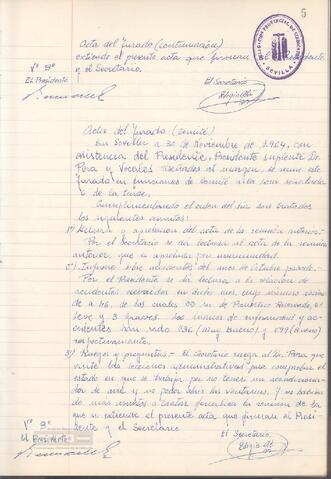 5
Acta del Jurado (continuación)
extiendo el presente acta que firman el Presidente
y el Secretario.
Vº Bº
El Presidente
El Secretario
SEVILLA
Acta del Jurado (Comité)
En Sevilla a 30 de Noviembre de 1964, con
asistencia del Presidente, Presidente suplente Sr.
Pora y Vocales reseñados al margen, se reune este
Jurado en funciones de Comité a la hora señalada
de la tarde.
Cumplimentando el orden del día son tratados
los siguientes asuntos:
1º) Lectura y aprobación del acta de la reunión anterior.-
Por el Secretario se da lectura al acta de la reunión
anterior que es aprobada por unanimidad.
2º) Informe sobre accidentes del mes de Octubre pasado.-
Por el Presidente se da lectura a la relación de
accidentes ocurridos en dicho mes, cuyo número ascien-
de a 46, de los cuales
leve y 3 graves. Los índices de enfermedad y ac-
cidentes han sido 936 (muy bueno) y
respectivamente.
3º) Ruegos y preguntas.- El Secretario ruega al Sr. Pora que
visite las secciones administrativas para comprobar el
estado en que se trabaja por no tener un acondicionador
de aire y no poder abrir las ventanas. Y no habiendo
más asuntos a tratar finaliza la reunión de la
que se extiende el presente acta que firman el Presi-
dente y el Secretario
Vº Bº
El Presidente
El Secretario